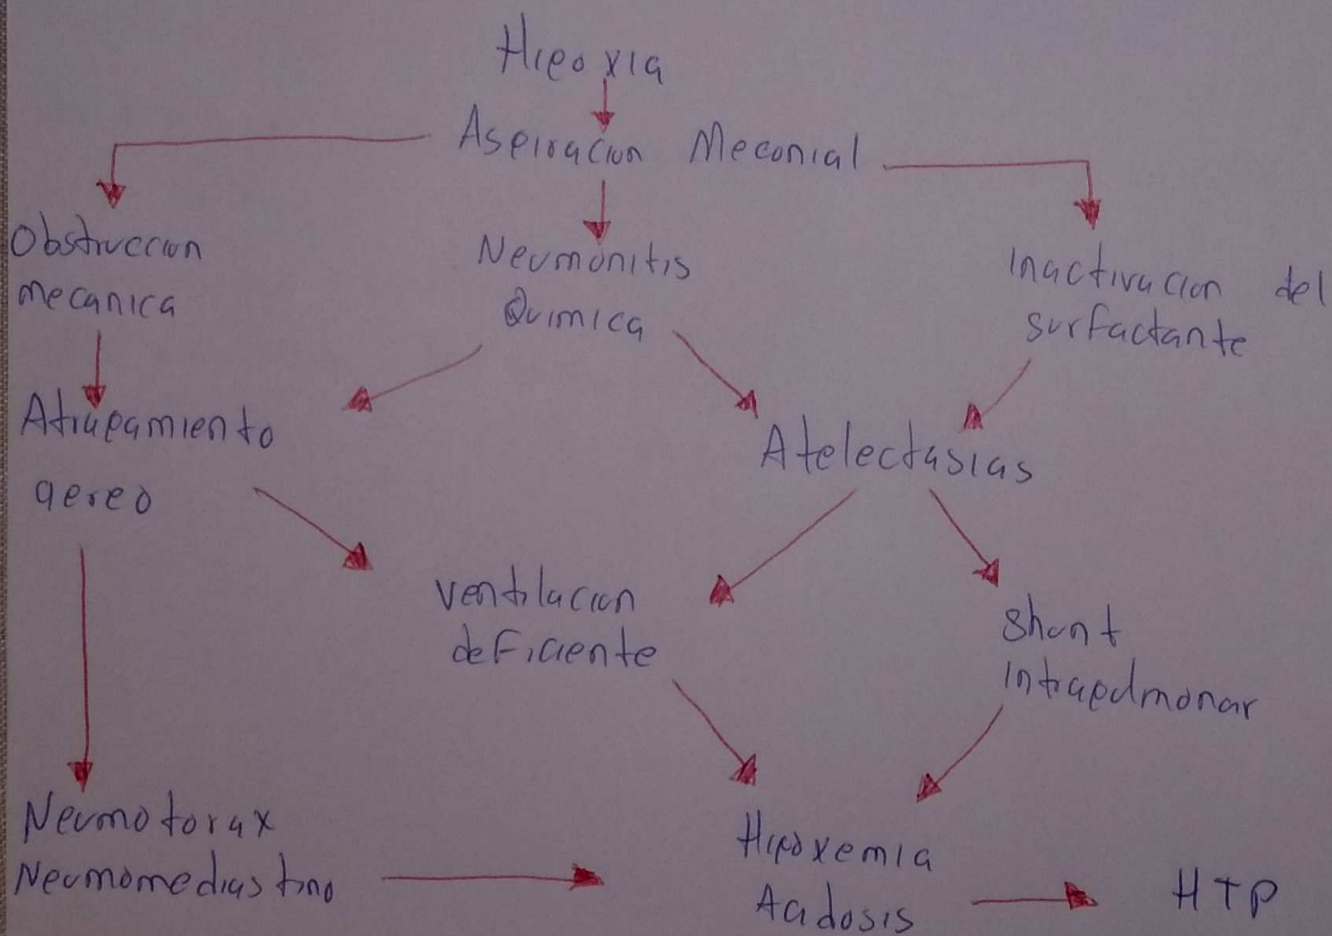 Hipoxia
Aspiracion Meconial
Obstruccion
mecanica
Neumonitis
Quimica
Inactivacion del
surfactante
Atrapamiento
aereo
Atelectasias
ventilacion
deficiente
Shunt
intrapulmonar
Neumotorax
Neumomediastino
Hipoxemia
Acidosis
HTP